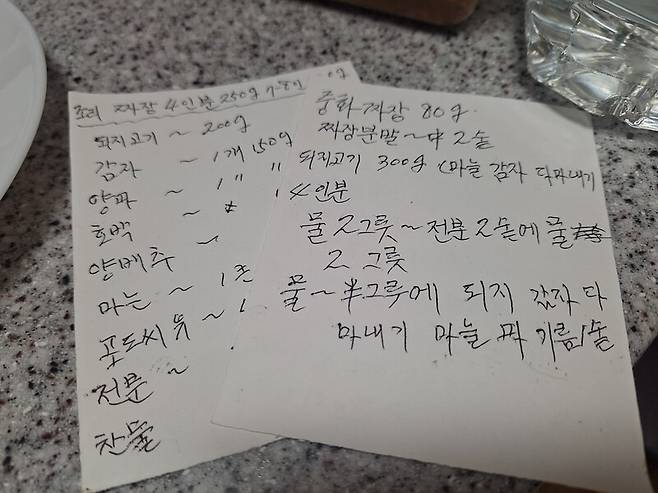 조리 짜장 4인분 250g 7~8인
돼지고기 ~ 200g
감자 ~ 1개 150g
양파 ~ 1 〃 〃
호박 ~
양배추 ~
마늘 ~ 1
포도씨유 ~ 1
전분 ~
찬물
중화짜장 80g
짜장분말 ~ 中 2솔
돼지고기 300g (마늘 감자 다마내기
4인분
물 2그릇 ~ 전분 2솔에 물
2 그릇
물 ~ 半그릇에 되지 감자 다
마내기 마늘 파 기름 1솔